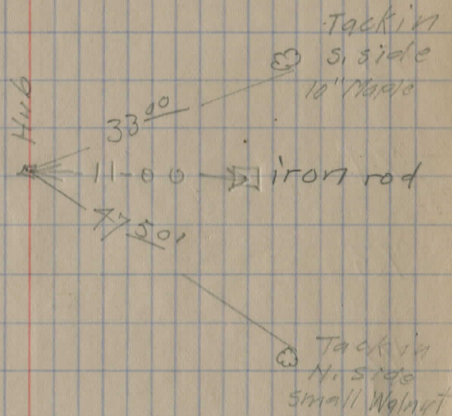 Tack in
S. side
10" Maple
Hub
33 00
11-00 iron rod
47 50
Tack in
N. side
small Walnut